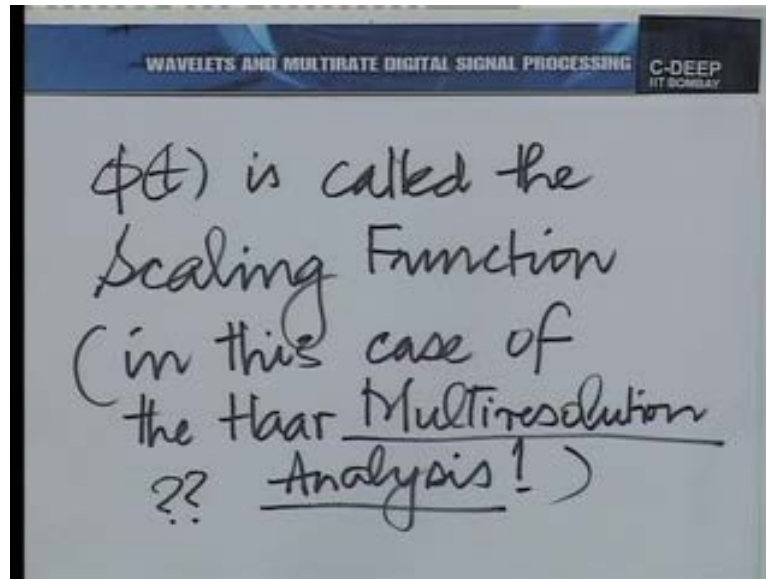 WAVELETS AND MULTIRATE DIGITAL SIGNAL PROCESSING
C-DEEP
IIT BOMBAY
ϕ(t) is called the
Scaling Function
(in this case of
the Haar Multiresolution
?? Analysis!)